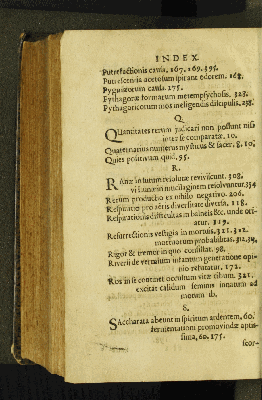 INDEX.
Putrefactionis causa. 167. 169. 395.
Putrescentia acetosum spirant odorem. 168.
Pygmæorum causa. 275.
Pythagoræ formarum metempsychosis. 323.
Pythagoricorum mos in eligendis discipulis. 238.
Q.
QUantitates rerum judicari non possunt nisi
inter se comparatæ. 10.
Quaternarius numerus mysticus & sacer. 8. 10.
Quies positivum quid. 95.
R.
RAnæ in lutum resolutæ reviviscunt. 308.
vel in mucilaginem resolvuntur. 334
Rerum productio ex nihilo negativo. 206.
Respiratio pro aëris diversitate diversa. 118.
Respirationis difficultas in balneis &c. unde oriatur. 119.
Resurrectionis vestigia in mortuis. 321. 322.
mortuorum probabilitas. 312.
Rigor & tremor in quo consistat. 98.
Riverii de vermium intantum generatione opinio refutatur. 172.
Ros in se continet occultum vitæ cibum. 321.
excitat calidum seminis innatum ad
motum ib.
S.
SAccharata abeunt in spiritum ardentem. 60.
fermentationi promovendæ aptissima. 60. 175.
scor-